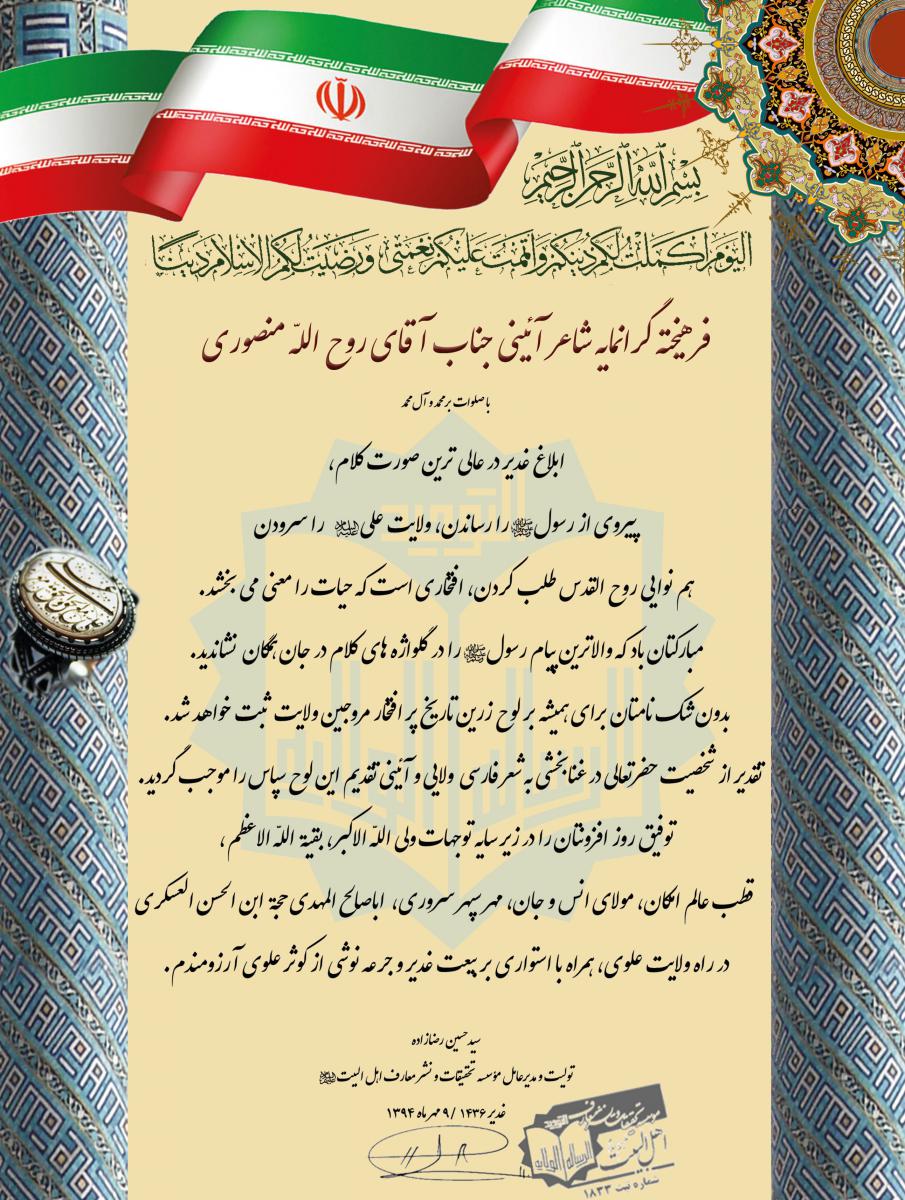 بسم الله الرحمن الرحیم
الیوم اکملت لکم دینکم و اتممت علیکم نعمتی و رضیت لکم الاسلام دینا
فرهیخته گرانمایه شاعر آئینی جناب آقای روح اللّه منصوری
با صلوات بر محمد و آل محمد
ابلاغ غدیر در عالی ترین صورت کلام،
پیروی از رسول ﷺ را رساندن، ولایت علی علیه السلام را سرودن
هم نوایی روح القدس طلب کردن، افتخاری است که حیات را معنی می بخشد.
مبارکتان باد که والاترین پیام رسول ﷺ را در گلواژه های کلام در جان همگان نشاندید.
بدون شک نامتان برای همیشه بر لوح زرین تاریخ پر افتخار مروجین ولایت ثبت خواهد شد.
تقدیر از شخصیت حضرتعالی در غنا بخشی به شعر فارسی ولایی و آئینی تقدیم این لوح سپاس را موجب گردید.
توفیق روز افزونتان را در زیر سایه توجهات ولی اللّه الاکبر، بقیة اللّه الاعظم،
قطب عالم امکان، مولای انس و جان، مهر سپهر سروری، اباصالح المهدی حجة ابن الحسن العسکری
در راه ولایت علوی، همراه با استواری بر بیعت غدیر و جرعه نوشی از کوثر علوی آرزومندم.
سید حسین رضازاده
تولیت و مدیرعامل مؤسسه تحقیقات و نشر معارف اهل البیت علیهم السلام
غدیر ۱۴۳۶ / ۹ مهر ماه ۱۳۹۴
اهل البیت
الرساله الولایه
شماره ثبت ۱۸۳۳